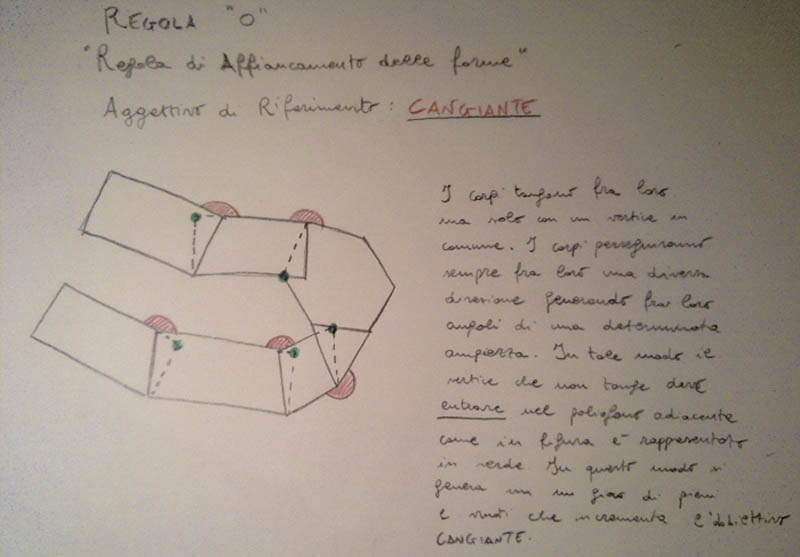 REGOLA "O"
"Regola di Affiancamento delle forme"
Aggettivo di Riferimento: CANGIANTE
I corpi tangono fra loro
ma solo con un vertice in
comune. I corpi perseguiranno
sempre fra loro una diversa
direzione generando fra loro
angoli di una determinata
ampiezza. In tale modo il
vertice che non tange deve
entrare nel poligono adiacente
come in figura è rappresentato
in verde. In questo modo si
genera un un gioco di pieni
e vuoti che incrementa l'obbiettivo
CANGIANTE.